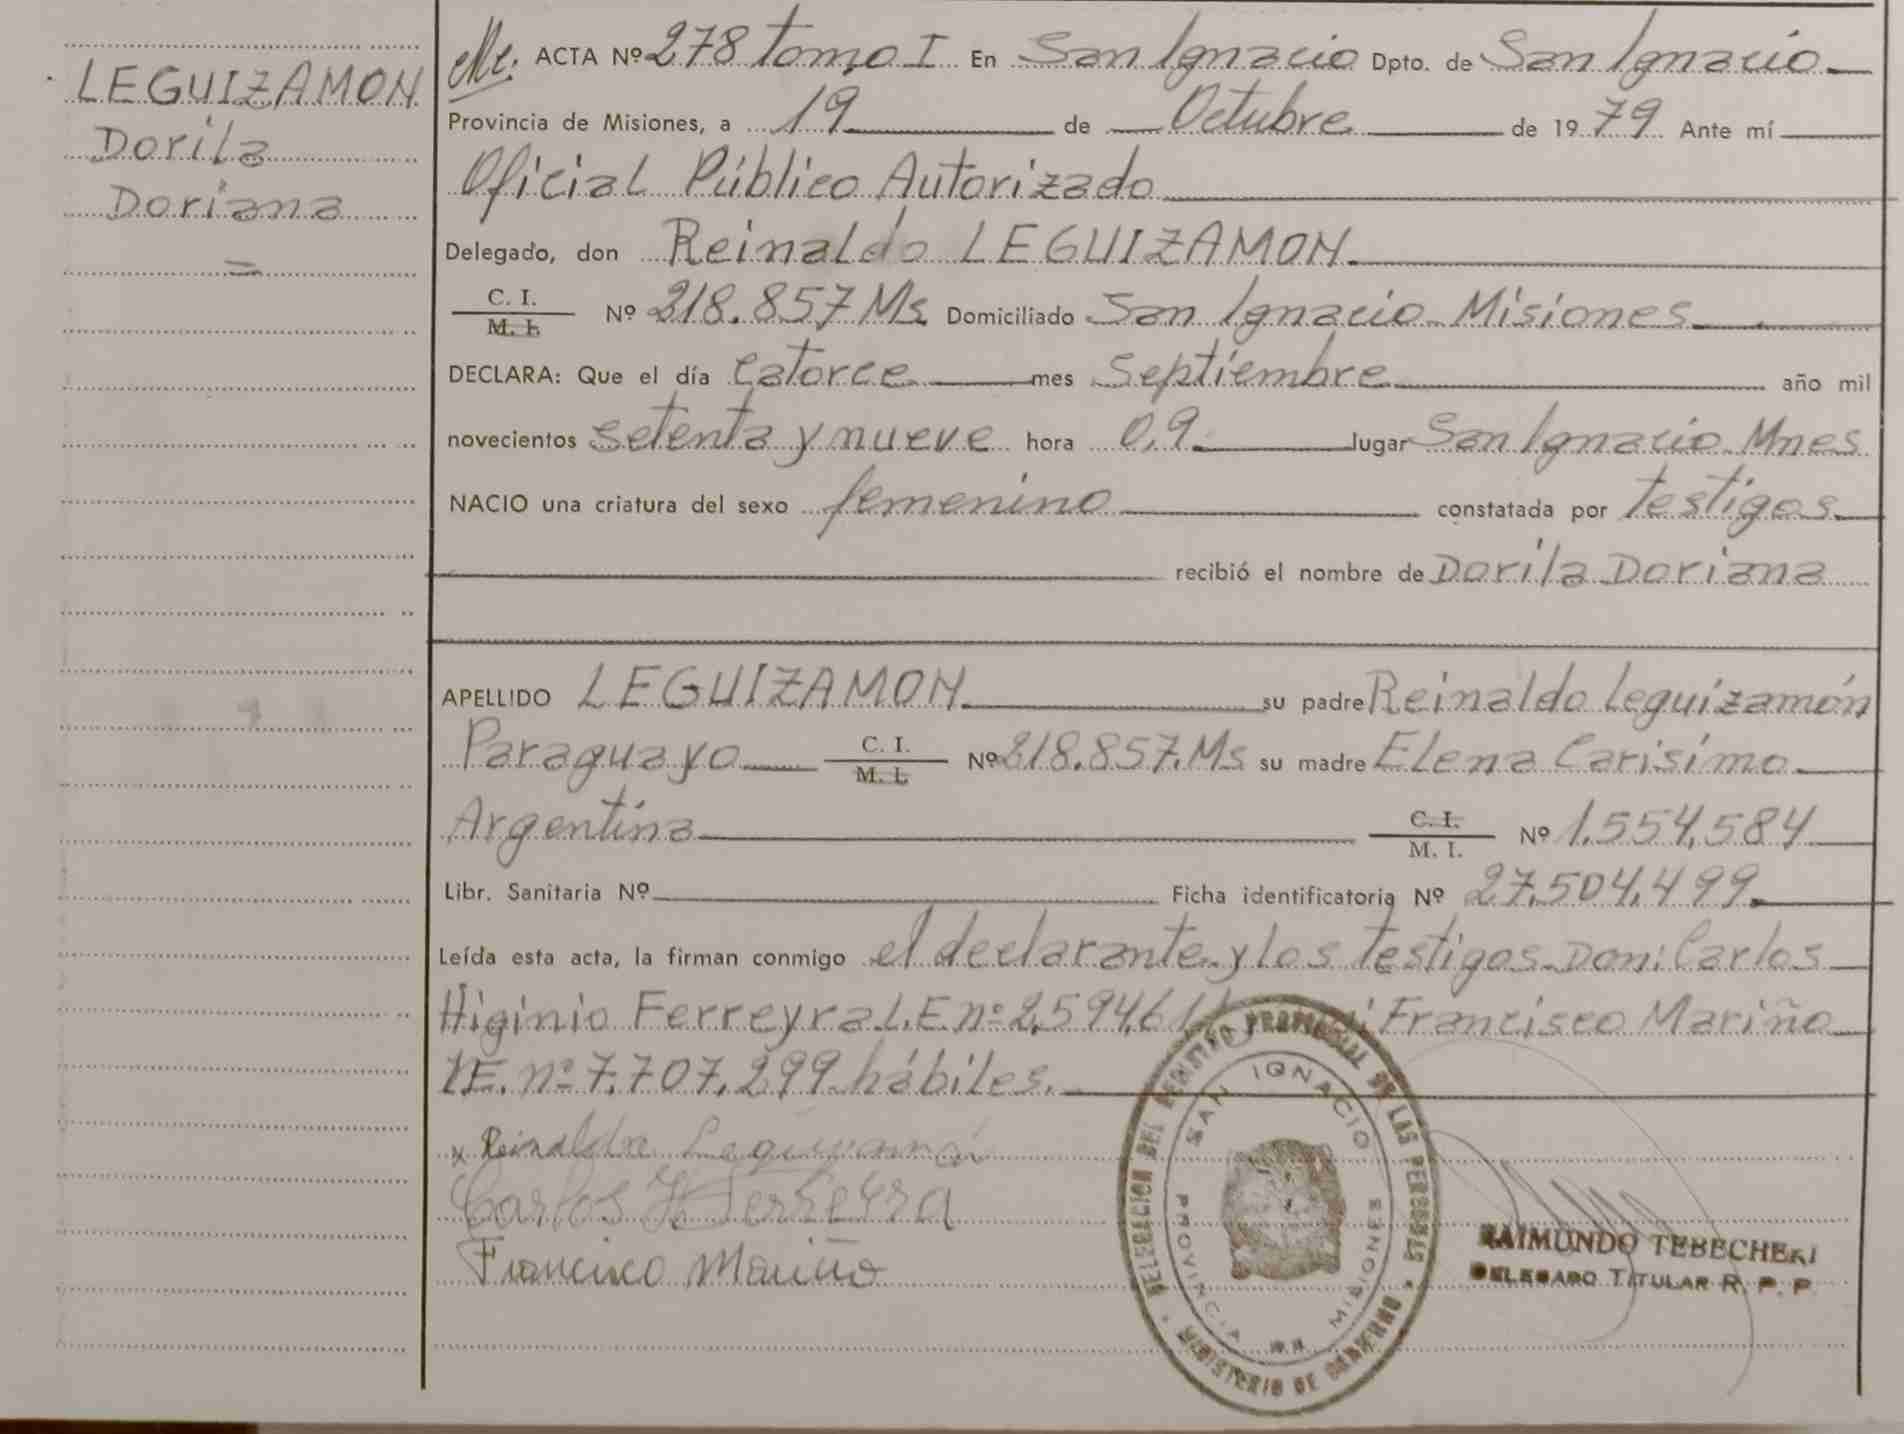 LEGUIZAMON
Dorila
Doriana
=
ACTA Nº 278 tomo I En San Ignacio Dpto. de San Ignacio
Provincia de Misiones, a 19 de Octubre de 1979 Ante mí
Oficial Público Autorizado
Delegado, don Reinaldo LEGUIZAMON
C. I.
M. I. Nº 218.857 Ms Domiciliado San Ignacio Misiones
DECLARA: Que el día Catorce mes Septiembre año mil
novecientos setenta y nueve hora 0,9 lugar San Ignacio Mnes
NACIO una criatura del sexo femenino constatada por testigos
recibió el nombre de Dorila Doriana
APELLIDO LEGUIZAMON su padre Reinaldo Leguizamón
Paraguayo C. I.
M. I. Nº 218.857.Ms su madre Elena Carisimo
Argentina C. I.
M. I. Nº 1.554.584
Libr. Sanitaria Nº Ficha identificatoria Nº 27.504.499
Leída esta acta, la firman conmigo el declarante y los testigos Don: Carlos
Higinio Ferreyra L.E nº 2.594.61 Francisco Mariño
LE. nº 7.707.299 hábiles.
x Reinaldo Leguizamón
Carlos H Ferreyra
Francisco Mariño
DELEGACION DEL REGISTRO PROVINCIAL DE LAS PERSONAS
MINISTERIO DE GOBIERNO
SAN IGNACIO
PROVINCIA DE MISIONES
RAIMUNDO TEBECHEKI
DELEGADO TITULAR R. P. P.